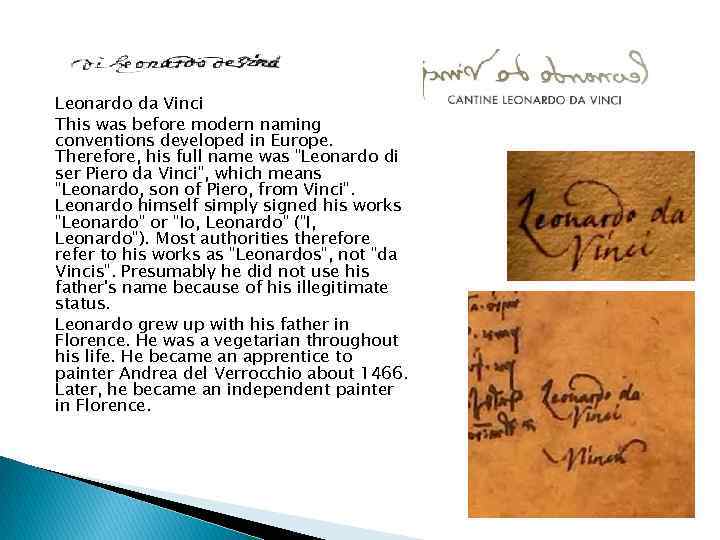 Di Leonardo de Vinci
CANTINE LEONARDO DA VINCI
Leonardo da Vinci
This was before modern naming
conventions developed in Europe.
Therefore, his full name was "Leonardo di
ser Piero da Vinci", which means
"Leonardo, son of Piero, from Vinci".
Leonardo himself simply signed his works
"Leonardo" or "Io, Leonardo" ("I,
Leonardo"). Most authorities therefore
refer to his works as "Leonardos", not "da
Vincis". Presumably he did not use his
father's name because of his illegitimate
status.
Leonardo grew up with his father in
Florence. He was a vegetarian throughout
his life. He became an apprentice to
painter Andrea del Verrocchio about 1466.
Later, he became an independent painter
in Florence.
Leonardo da
Vinci
Leonardo da
Vinci